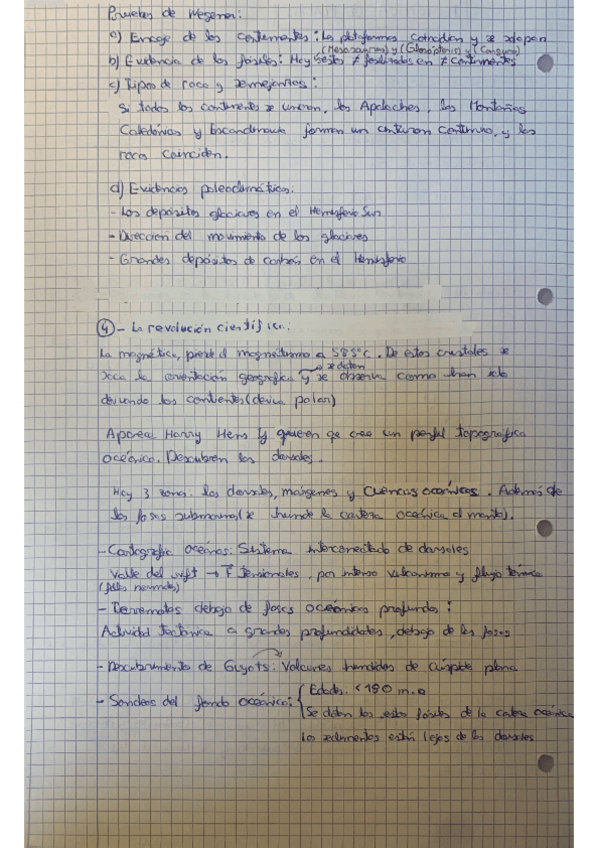 Pruebas de Wegener:
a) Encaje de los continentes: Las plataformas coinciden y se solapan
(Mesosaurus) y (Glossopteris) y
b) Evidencia de los fósiles: Hay restos ≠ fosilizados en ≠ continentes
c) Tipos de roca y semejantes:
Si todos los continentes se unieran, los Apalaches, las Montañas
Caledónicas y Escandinavia forman un cinturon continuo, y las
rocas coinciden.
d) Evidencias paleoclimáticas:
- Los depósitos glaciares en el Hemisferio Sur
- Direccion del movimiento de los glaciares
- Grandes depósitos de carbón en el Hemisferio
4 - La revolución científica.
La magnetita, pierde el magnetismo a 585°C. De estos cristales se
se datan
saca la orientación geográfica y se observa como han ido
derivando los continentes (deriva polar)
Aparece Harry Hess y quieren que cree un perfil topografico
oceánico. Descubren las dorsales.
Hay 3 zonas: las dorsales, márgenes y cuencas oceánicas. Además de
las fosas submarinas (se hunde la corteza oceánica al manto).
- Cartografía oceános: Sistema interconectado de dorsales
Valle del rift → F tensionales, por intenso vulcanismo y flujo térmico
(fallas normales)
- Terremotos debajo de fosas oceánicas profundas:
Actividad tectónica a grandes profundidades, debajo de las fosas
- Descubrimiento de Guyots: Volcanes hundidos de cúspide plana
- Sondeos del fondo oceánico: Edades < 180 m.a
Se datan los fósiles de la corteza oceánica
Los sedimentos están lejos de las dorsales